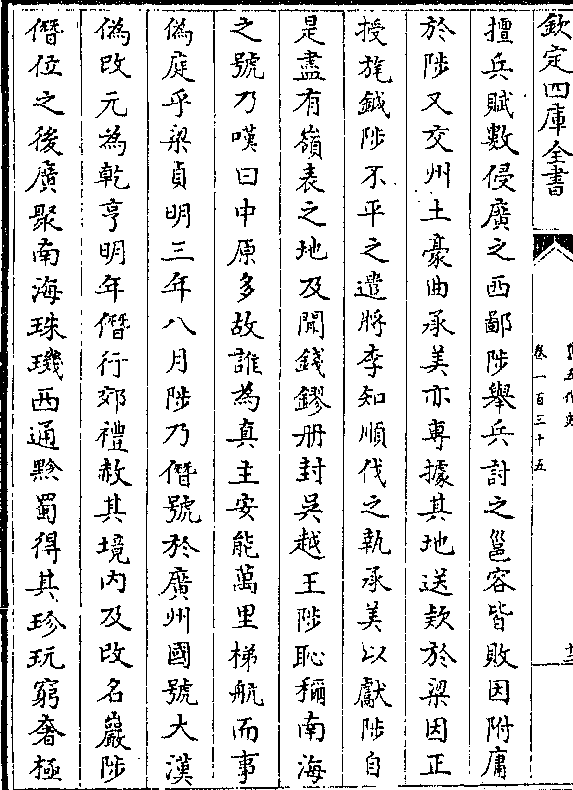 欽定四庫全書
舊五代史
卷一百三十五
十三
擅兵賦數侵廣之西鄙陟舉兵討之邕容皆敗因附庸
於陟又交州土豪曲承美亦專據其地送欵於梁因正
授旄鉞陟不平之遣將李知順伐之執承美以獻陟自
是盡有嶺表之地及聞錢鏐册封吳越王陟恥稱南海
之號乃嘆曰中原多故誰為真主安能萬里梯航而事
偽庭乎梁貞明三年八月陟乃僭號於廣州國號大漢
偽改元為乾亨明年僭行郊禮赦其境内及改名巖陟
僭位之後廣聚南海珠璣西通黔蜀得其珍玩窮奢極